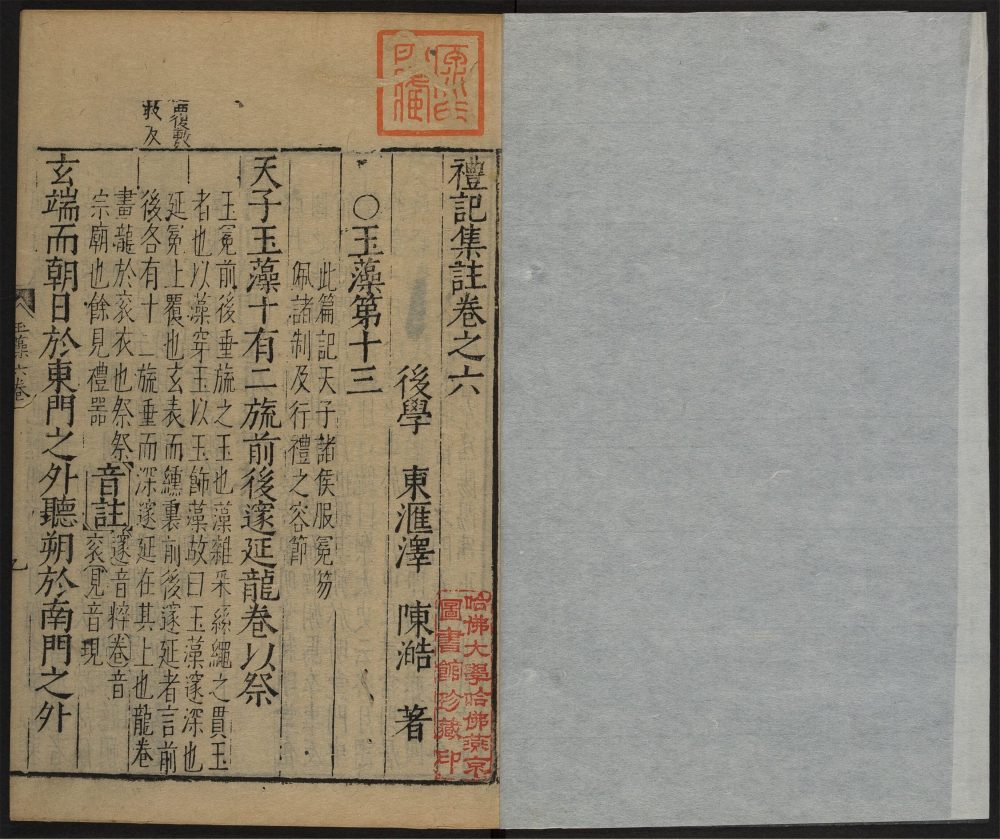 禮記集註卷之六
後學 東滙澤 陳澔 著
○玉藻第十三
此篇記天子諸侯服冕笏
佩諸制及行禮之容節
天子玉藻十有二旒前後邃延龍卷以祭
玉冕前後垂旒之玉也藻雜采絲繩之貫玉
者也以藻穿玉以玉飾藻故曰玉藻邃深也
延冕上覆也玄表而纁裏前後邃延者言前
後各有十二旒垂而深邃延在其上也龍卷
畫龍於衮衣也祭祭
宗廟也餘見禮器
音註
邃音粹卷音
衮見音現
玄端而朝日於東門之外聽朔於南門之外
玉藻六卷
哈佛大學哈佛燕京
圖書館珍藏印